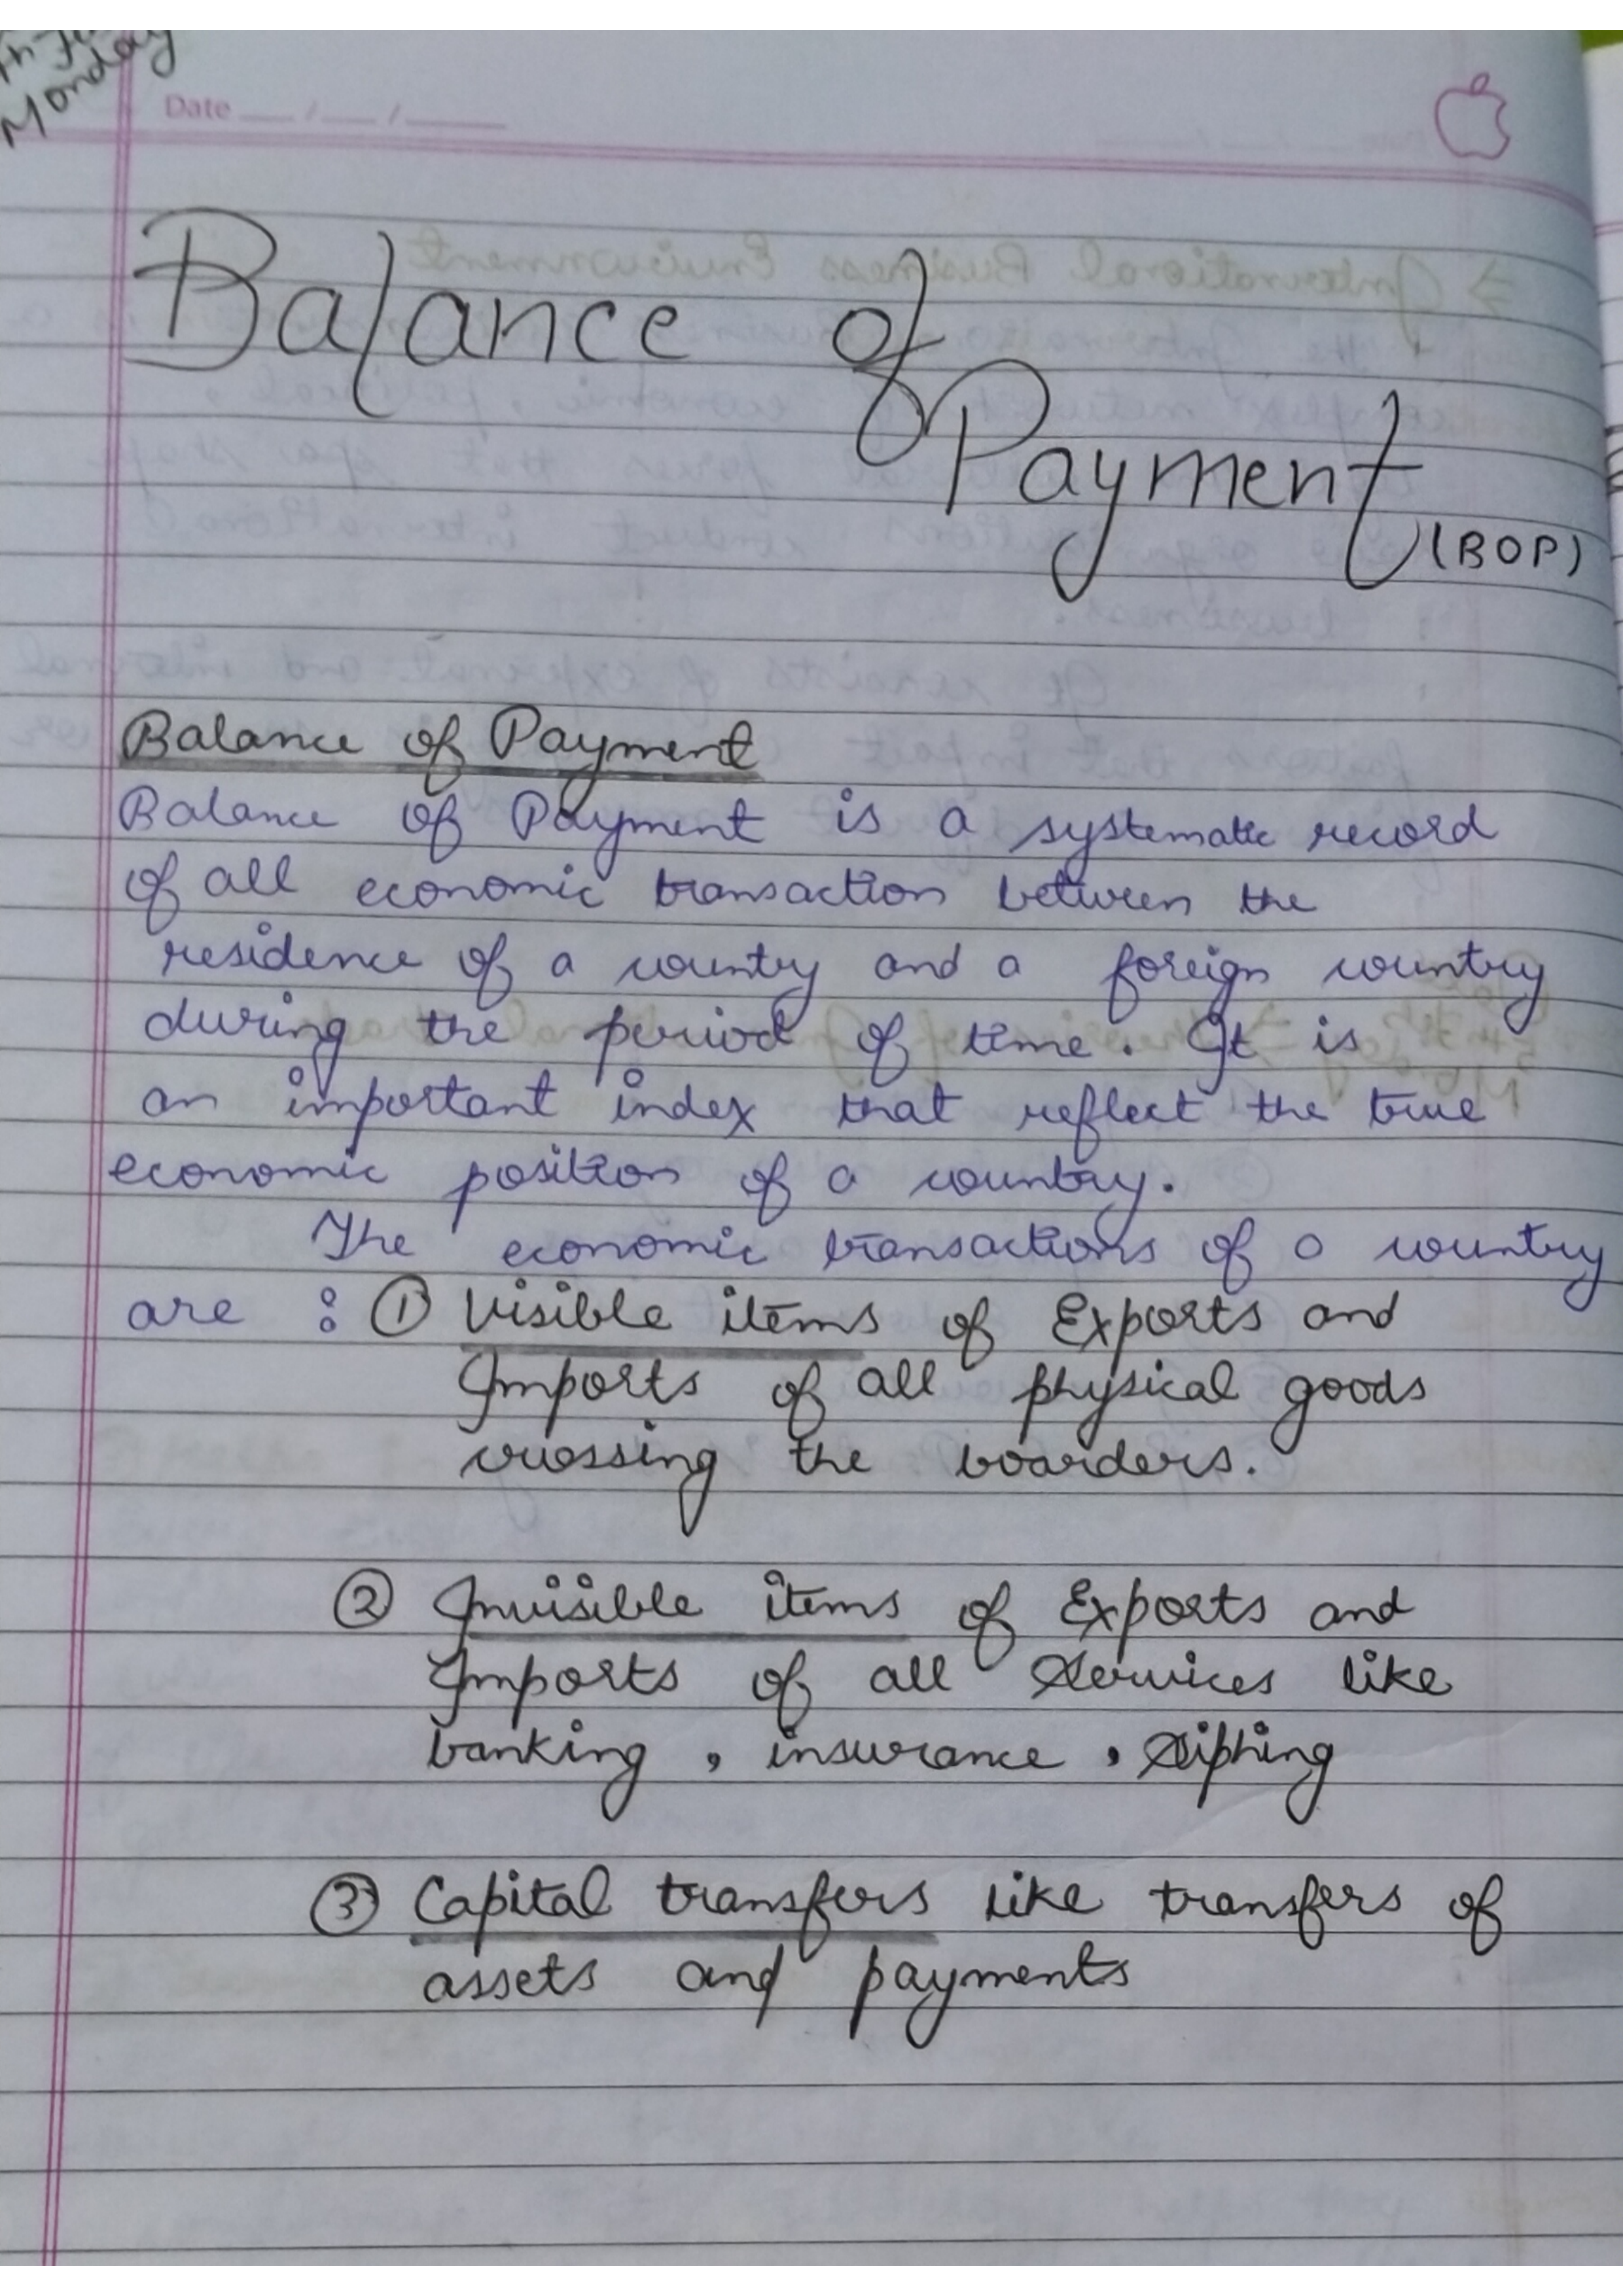 Monday
Date __/__/____
Balance of
Payment
(BOP)
Balance of Payment
Balance of Payment is a systematic record
of all economic transaction between the
residence of a country and a foreign country
during the period of time. It is
an important index that reflect the true
economic position of a country.
The economic transactions of a country
are : ① Visible items of Exports and
Imports of all physical goods
crossing the boarders.
② Invisible items of Exports and
Imports of all Services like
banking , insurance ,
③ Capital transfers like transfers of
assets and payments